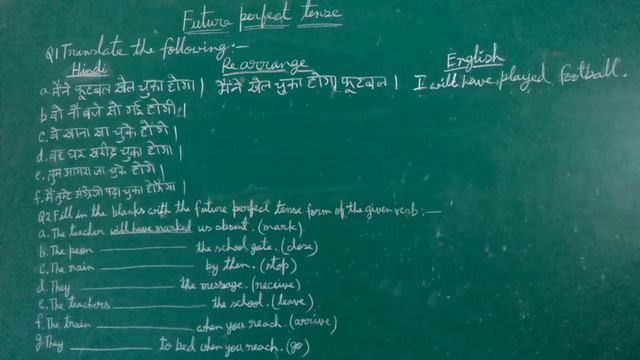 Future perfect tense
Q1 Translate the following:-
Hindi Rearrange English
a. मैंने फूटबल खेल चुका होगा। मैंने खेल चुका होगा फूटबल। I will have played football.
b. वो नौ बजे सो गई होगी।
c. वे खाना खा चुके होंगे
d. वह घर खरीद चुका होगा।
e. तुम आगरा जा चुके होगे।
f. मैं तुम्हे अंग्रेजी पढ़ा चुका
Q2 Fill in the blanks with the future perfect tense form of the given verb:-
a. The teacher will have marked us absent. (mark)
b. The peon ____________ the school gate. (close)
c. The rain ____________ by then. (stop)
d. They ____________ the message. (receive)
e. The teachers ____________ the school. (leave)
f. The train ____________ when you reach. (arrive)
g. They ____________ to bed when you reach. (go)